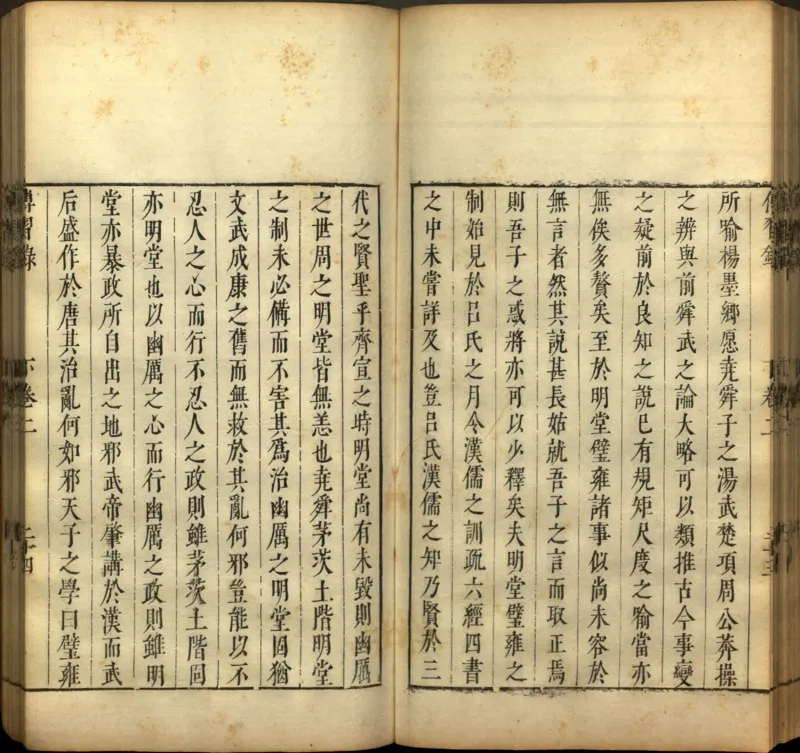 所喻楊墨鄉愿堯舜子之湯武楚項周公莽操
之辨與前舜武之論大略可以類推古今事變
之疑前於良知之說已有規矩尺度之喻當亦
無俟多贅矣至於明堂璧雍諸事似尚未容於
無言者然其說甚長姑就吾子之言而取正焉
則吾子之惑將亦可以少釋矣夫明堂璧雍之
制始見於呂氏之月令漢儒之訓疏六經四書
之中未嘗詳及也豈呂氏漢儒之知乃賢於三
代之賢聖乎齊宣之時明堂尚有未毀則幽厲
之世周之明堂皆無恙也堯舜茅茨土階明堂
之制未必備而不害其爲治幽厲之明堂固猶
文武成康之舊而無救於其亂何邪豈能以不
忍人之心而行不忍人之政則雖茅茨土階固
亦明堂也以幽厲之心而行幽厲之政則雖明
堂亦暴政所自出之地邪武帝肇講於漢而武
后盛作於唐其治亂何如邪天子之學曰璧雍
傳習錄 下卷二 二十四